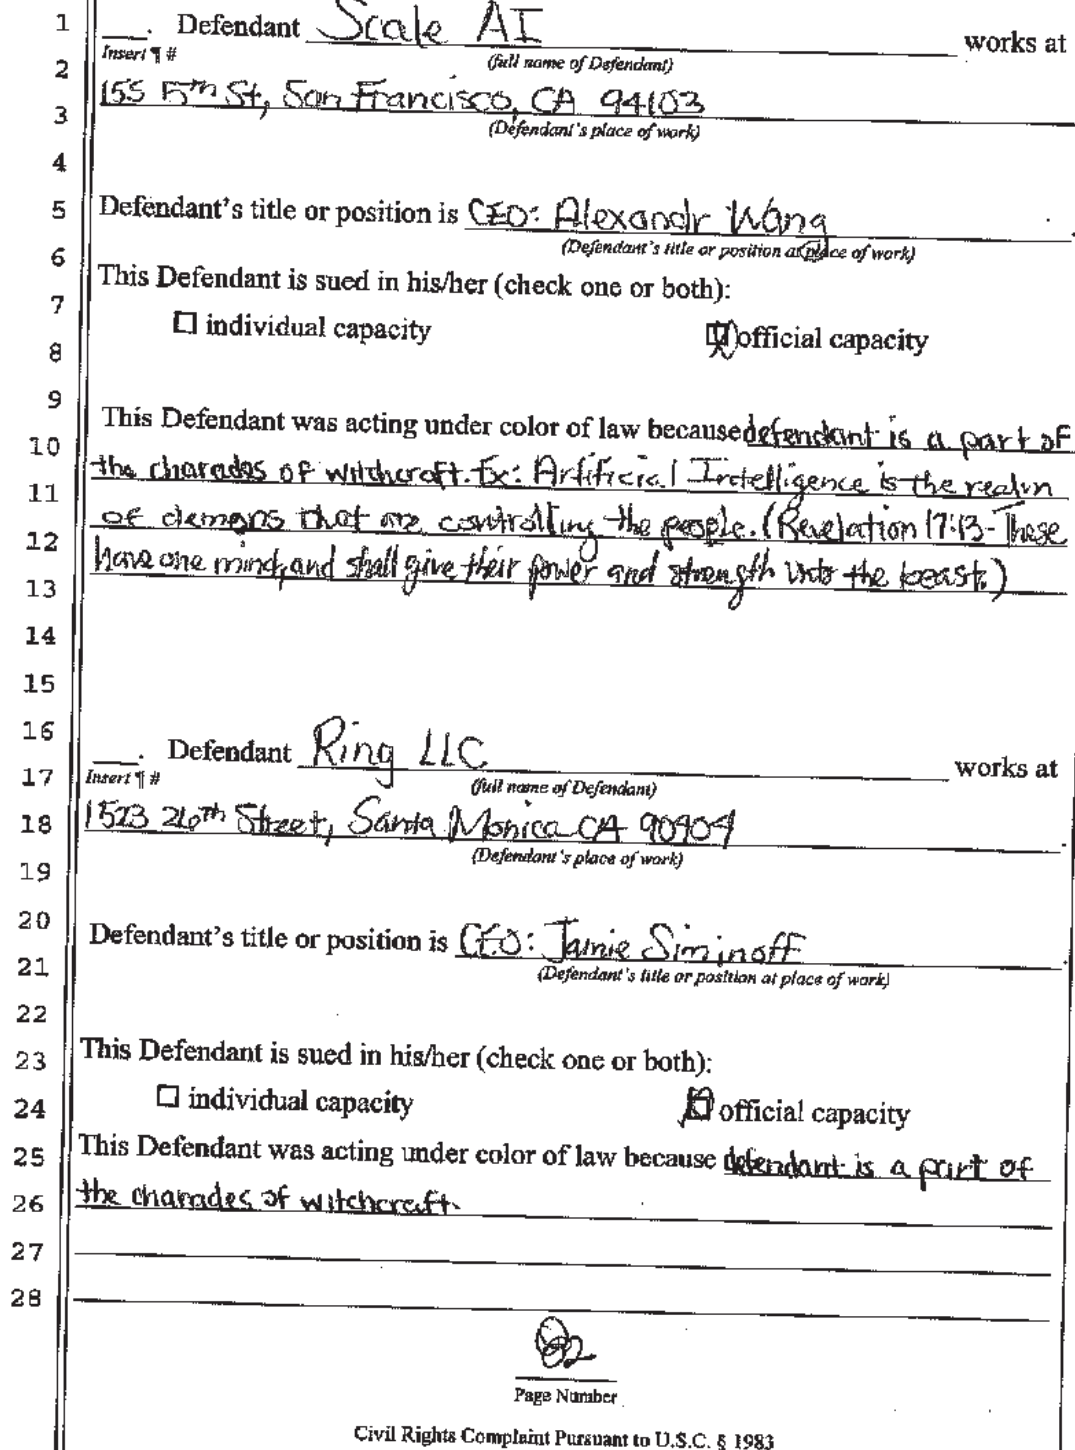 1 ___. Defendant Scale AI works at
Insert ¶ # (full name of Defendant)
2
155 5th St, San Francisco, CA 94103
3 (Defendant's place of work)
4
5 Defendant's title or position is CEO: Alexandr Wang.
(Defendant's title or position at place of work)
6
This Defendant is sued in his/her (check one or both):
7
☐ individual capacity ☒ official capacity
8
9
This Defendant was acting under color of law because defendant is a part of
10
the charades of witchcraft. Ex: Artificial Intelligence is the realm
11
of demons that are controlling the people. (Revelation 17:13- These
12
have one mind, and shall give their power and strength unto the beast.)
13
14
15
16
___. Defendant Ring LLC works at
17 Insert ¶ # (full name of Defendant)
18 1523 26th Street, Santa Monica CA 90404.
(Defendant's place of work)
19
20
Defendant's title or position is CEO: Jamie Siminoff.
21 (Defendant's title or position at place of work)
22
23 This Defendant is sued in his/her (check one or both):
24 ☐ individual capacity ☒ official capacity
25 This Defendant was acting under color of law because defendant is a part of
26 the charades of witchcraft.
27
28
Page Number
Civil Rights Complaint Pursuant to U.S.C. § 1983